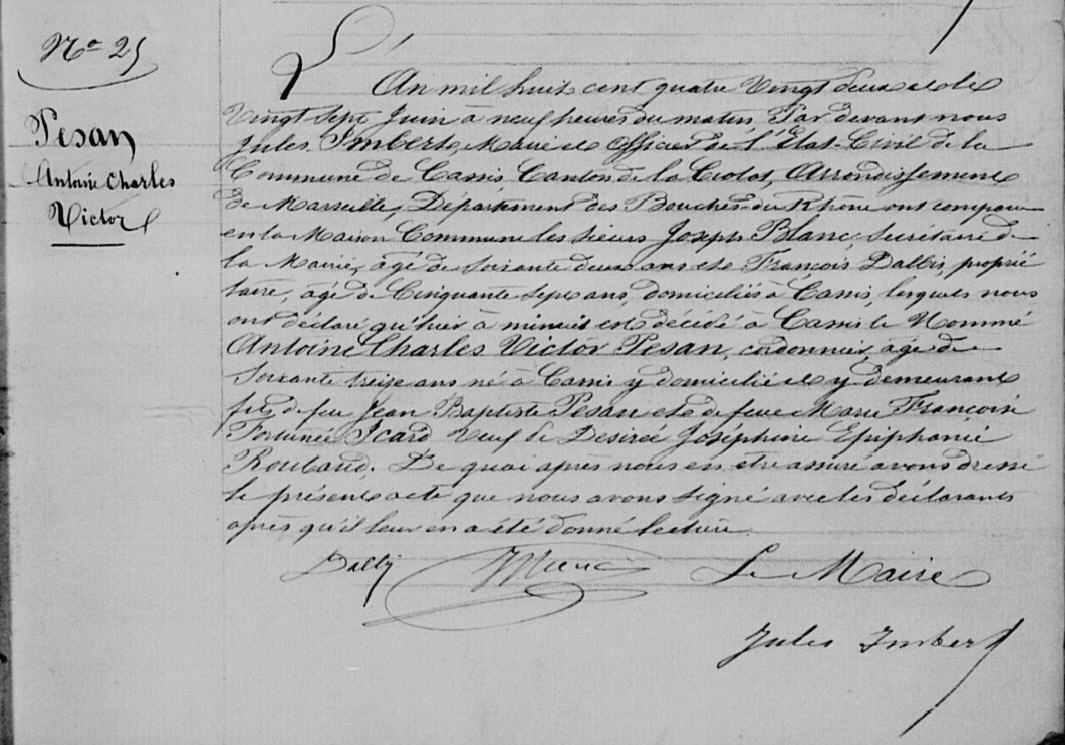 No 25
Pesan
Antoine Charles
Victor
L'An mil huit cent quatre Vingt deux et le
Vingt sept Juin à neuf heures du matin Par devant nous
Jules Imbert, Maire et Officier de l'Etat-Civil de la
Commune de Cassis, Canton de la Ciotat, Arrondissement
de Marseille, Département des Bouches du Rhône ont comparu
en la Maison Commune les sieurs Joseph Blanc, Secrétaire de
la Mairie, âgé de Soixante deux ans et François Dalbis, proprié
taire, âgé de Cinquante sept ans, domiciliés à Cassis, lesquels nous
ont déclaré qu'hier à minuit est décédé à Cassis le Nommé
Antoine Charles Victor Pesan, cordonnier, âgé de
Soixante treize ans né à Cassis y domicilié et y demeurant
fils de feu Jean Baptiste Pesan et de feue Marie Françoise
Fortunée Icard Veuf de Desirée Joséphine Epiphanie
Roubaud. De quoi après nous en être assuré avons dressé
le présent acte que nous avons signé avec les déclarants
après qu'il leur en a été donné lecture.
Blanc Le Maire
Jules Imbert